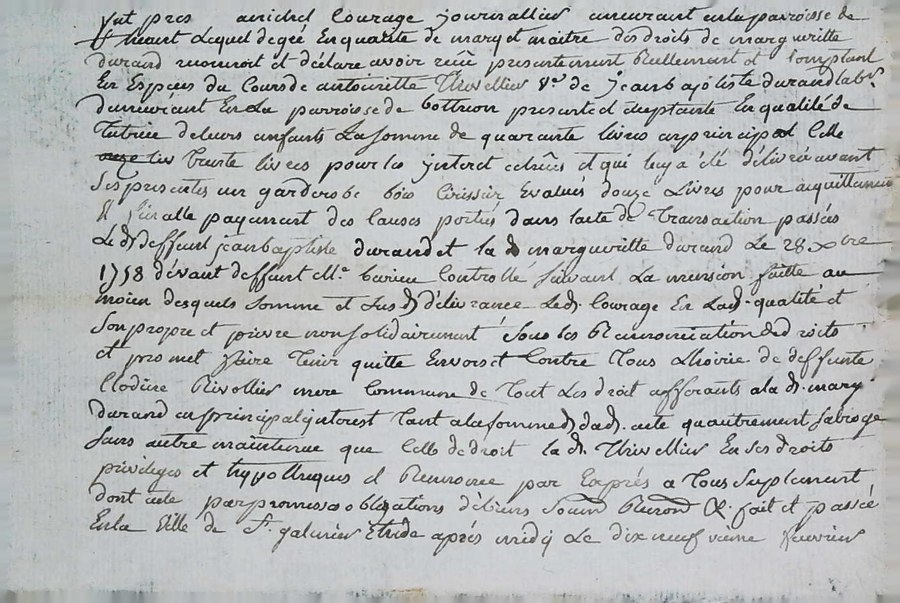 fut pres michel Courage journallier demeurant en la parroisse de
lequel de gré En qualité de mary et maitre des droits de margueritte
durand reconnoit et déclare avoir reçu presentement Réellement et Comptant
En Espèces du Cours de antoinette Thivellier v.e de jean baptiste durand lab.r
demeurant En La parroisse de bothreon presente et acceptante En qualité de
Tutrice de leurs enfants La somme de quarante livres en principal Celle
Trente livres pour les interet echus et qui luy a été délivré avant
Ses presentes un garderobe bois Cerisier Evalués douze Livres pour acquittement
Et final payement des Causes portés dans l'acte de Transaction passée
Le d. deffunt jean baptiste durand et la d. margueritte durand Le 28 xbre
1758 devant deffunt M.e Controllé suivant La mension faitte au
moien desquels Somme et délivrance Led. Courage En Lad. qualité et
Son propre et privé nom solidairement Sous les Renonciation de droits
et promet faire Tenir quitte Envers et Contre Tous L'hoirie de deffunte
Claudine Rivollier mere Commune de Tout Les droit afferants a la d. mary
durand en principal interest Tant a la somme dud. acte qu'autrement
Sans autre maintenue que Celle de droit la d. Thivellier En ses droits
privileges et hypotheques et Renoncé par Exprès a Tous Suplement
dont acte par promesses obligations d. biens Soum. Renon. &. fait et passé
En la Ville de S.t galmier Etude après midy Le dix neuf vieme fevrier